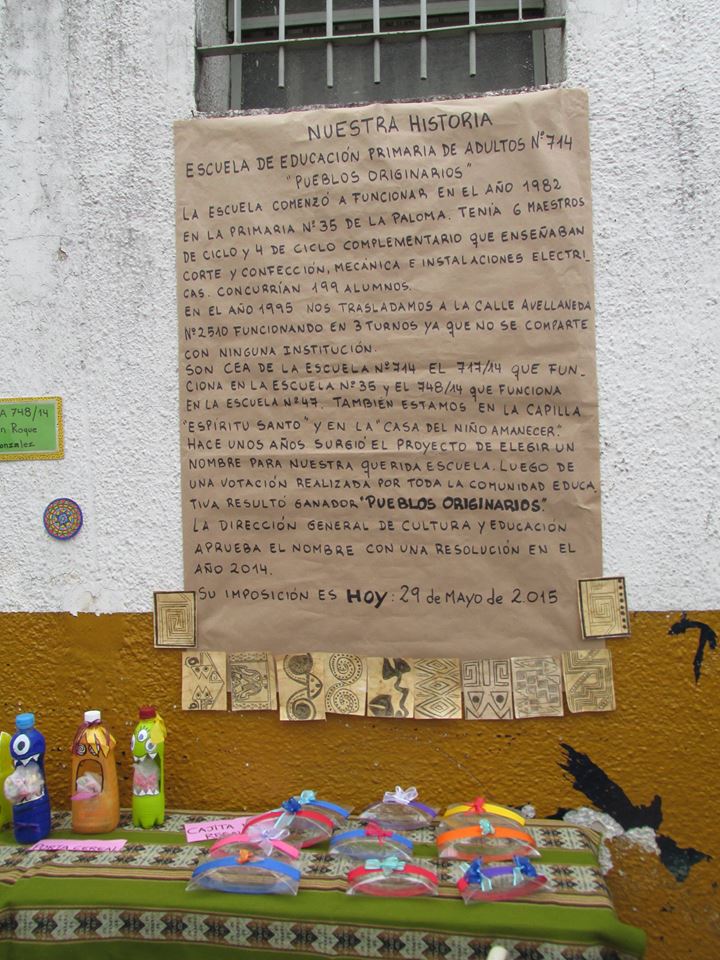 NUESTRA HISTORIA
ESCUELA DE EDUCACIÓN PRIMARIA DE ADULTOS Nº714
"PUEBLOS ORIGINARIOS"
LA ESCUELA COMENZÓ A FUNCIONAR EN EL AÑO 1982
EN LA PRIMARIA Nº35 DE LA PALOMA. TENÍA 6 MAESTROS
DE CICLO Y 4 DE CICLO COMPLEMENTARIO QUE ENSEÑABAN
CORTE Y CONFECCIÓN, MECÁNICA E INSTALACIONES ELECTRI-
CAS. CONCURRÍAN 199 ALUMNOS.
EN EL AÑO 1995 NOS TRASLADAMOS A LA CALLE AVELLANEDA
Nº2510 FUNCIONANDO EN 3 TURNOS YA QUE NO SE COMPARTE
CON NINGUNA INSTITUCIÓN.
SON CEA DE LA ESCUELA Nº714 EL 717/14 QUE FUN-
CIONA EN LA ESCUELA Nº35 Y EL 748/14 QUE FUNCIONA
EN LA ESCUELA Nº47. TAMBIÉN ESTAMOS EN LA CAPILLA
"ESPÍRITU SANTO" Y EN LA "CASA DEL NIÑO AMANECER".
HACE UNOS AÑOS SURGIÓ EL PROYECTO DE ELEGIR UN
NOMBRE PARA NUESTRA QUERIDA ESCUELA. LUEGO DE
UNA VOTACIÓN REALIZADA POR TODA LA COMUNIDAD EDUCA
TIVA RESULTÓ GANADOR "PUEBLOS ORIGINARIOS".
LA DIRECCIÓN GENERAL DE CULTURA Y EDUCACIÓN
APRUEBA EL NOMBRE CON UNA RESOLUCIÓN EN EL
AÑO 2014.
SU IMPOSICIÓN ES HOY: 29 de MAYO de 2.015
A 748/14
n Roque
onzalez
CAJITA